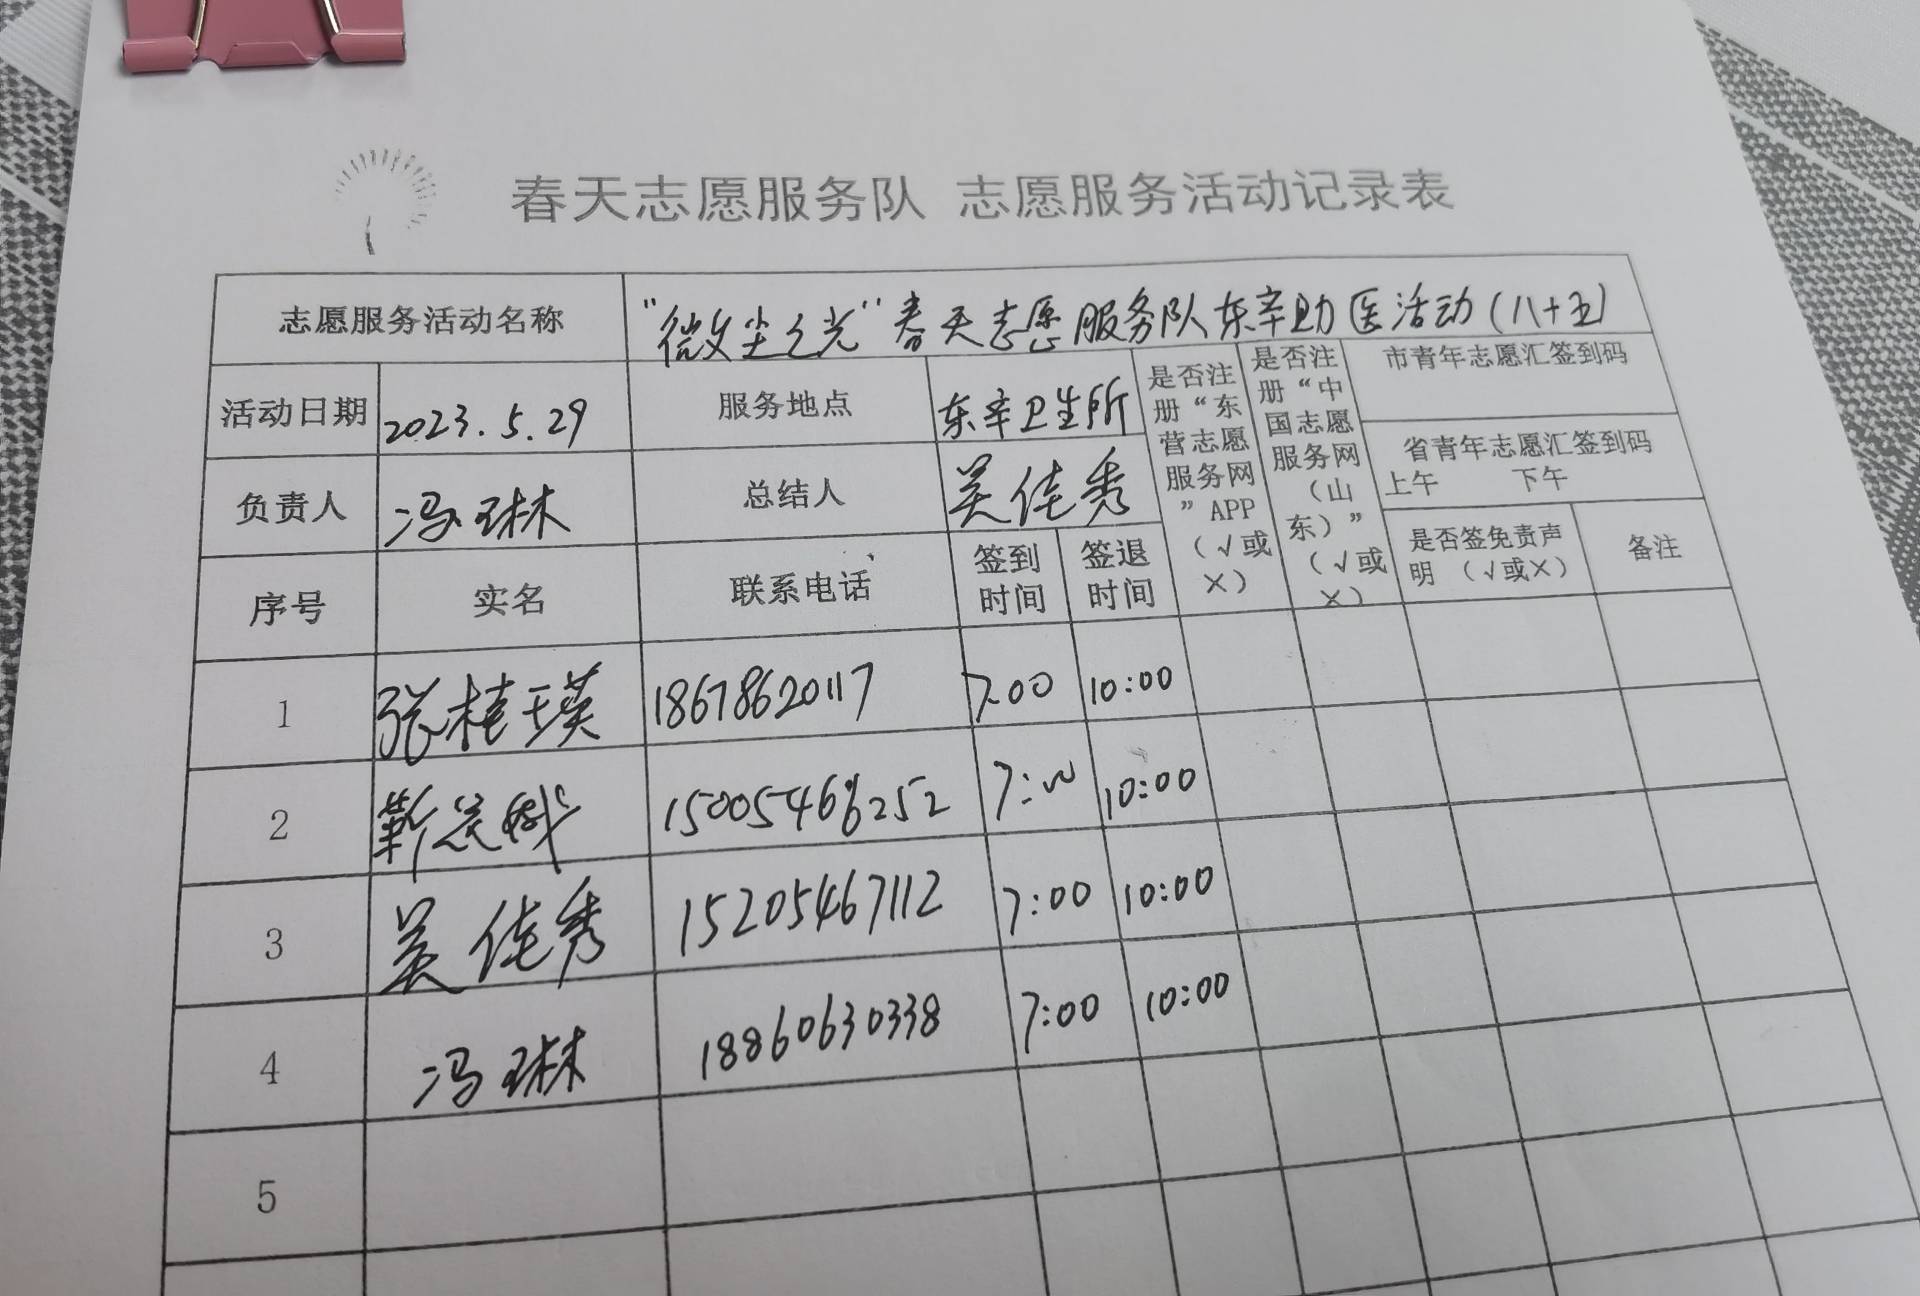 春天志愿服务队 志愿服务活动记录表
志愿服务活动名称 "微尘之光"春天志愿服务队东辛助医活动(八十五)
活动日期 2023.5.29 服务地点 东辛卫生所
是否注册“东营志愿服务网”APP(√或×)
是否注册“中国志愿服务网(山东)”(√或×)
市青年志愿汇签到码
省青年志愿汇签到码
上午 下午
负责人 冯琳 总结人 吴佳秀
是否签免责声明 (√或×) 备注
序号 实名 联系电话 签到时间 签退时间
1 张桂瑛 18678620117 7:00 10:00
2 靳 7:00 10:00
3 吴佳秀 15205467112 7:00 10:00
4 冯琳 18860630338 7:00 10:00
5